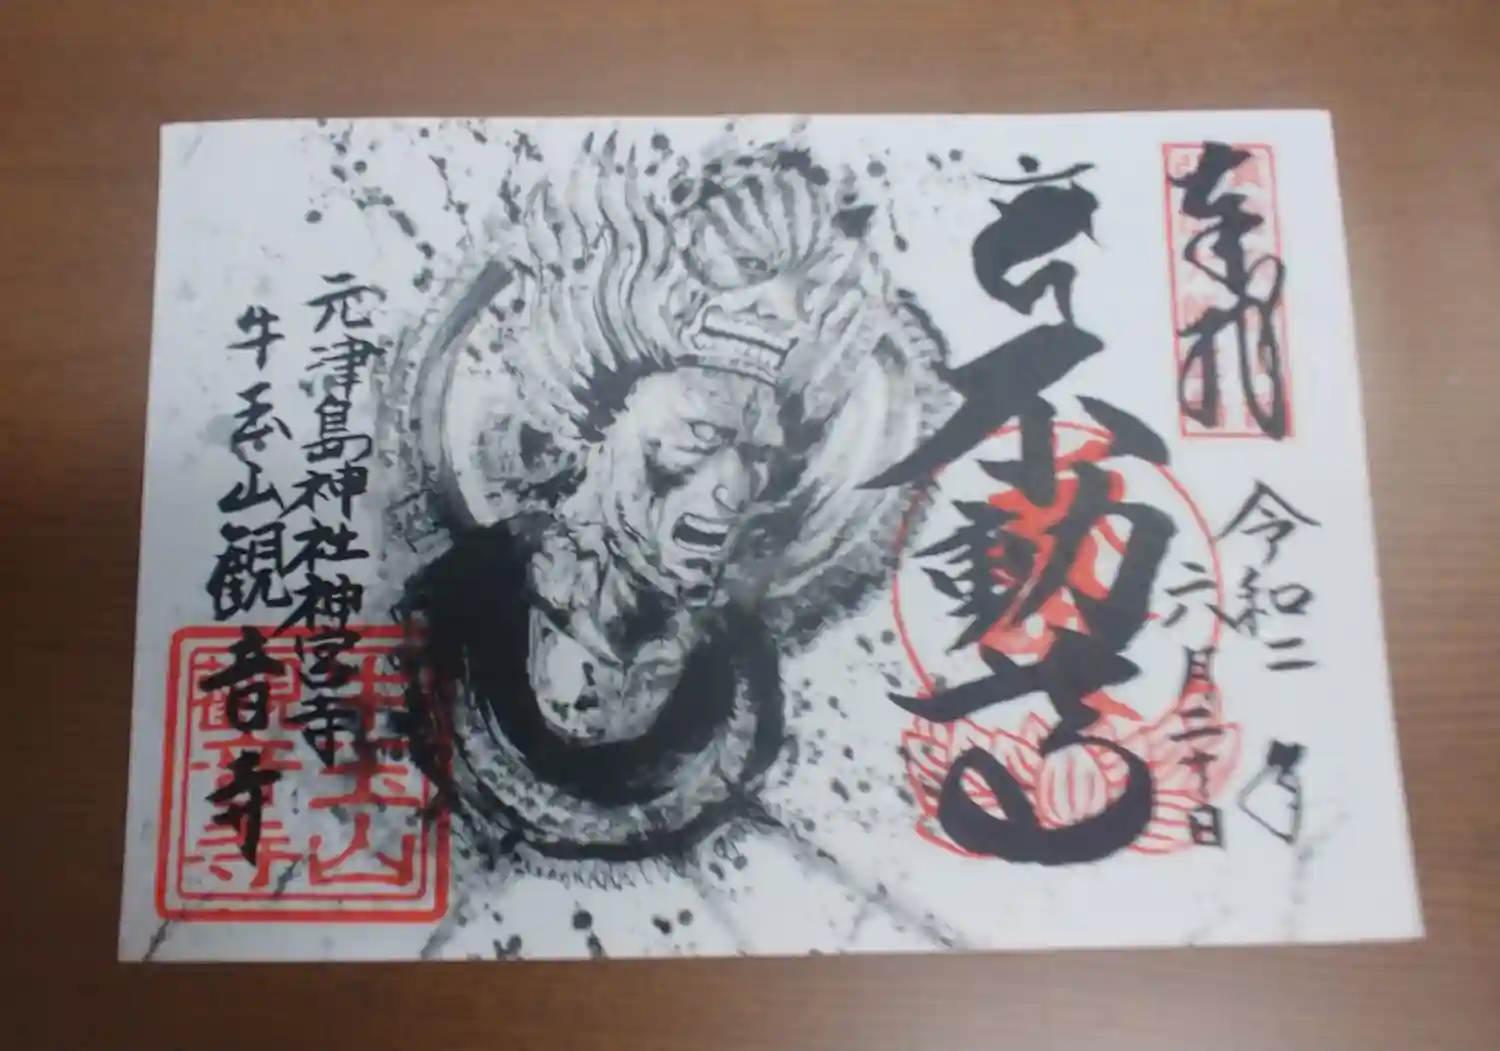 奉拝
令和二年
六月二十日
不動尊
元津島神社神宮寺
牛玉山観音寺
牛玉山
觀音寺